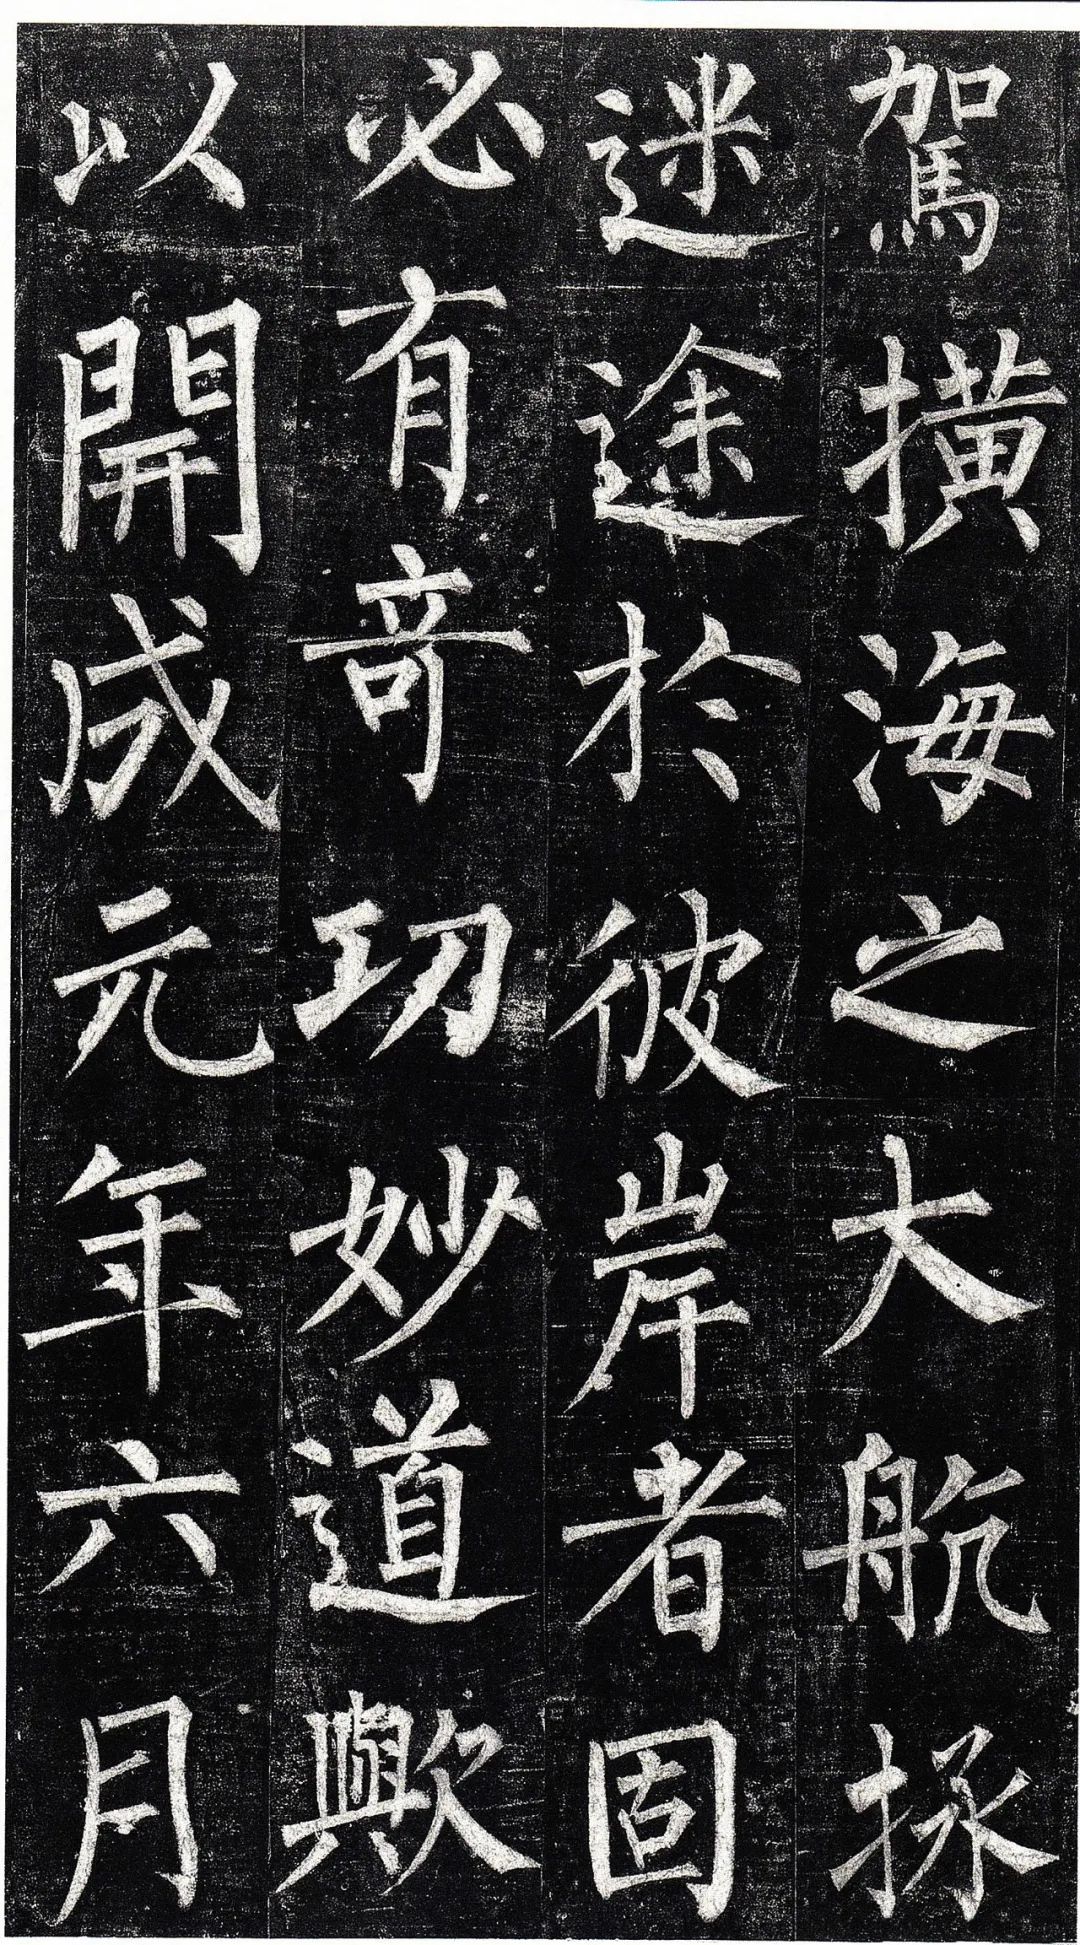 駕撗海之大航拯
迷途於彼岸者固
必有竒㓛妙道歟
以開成元年六月